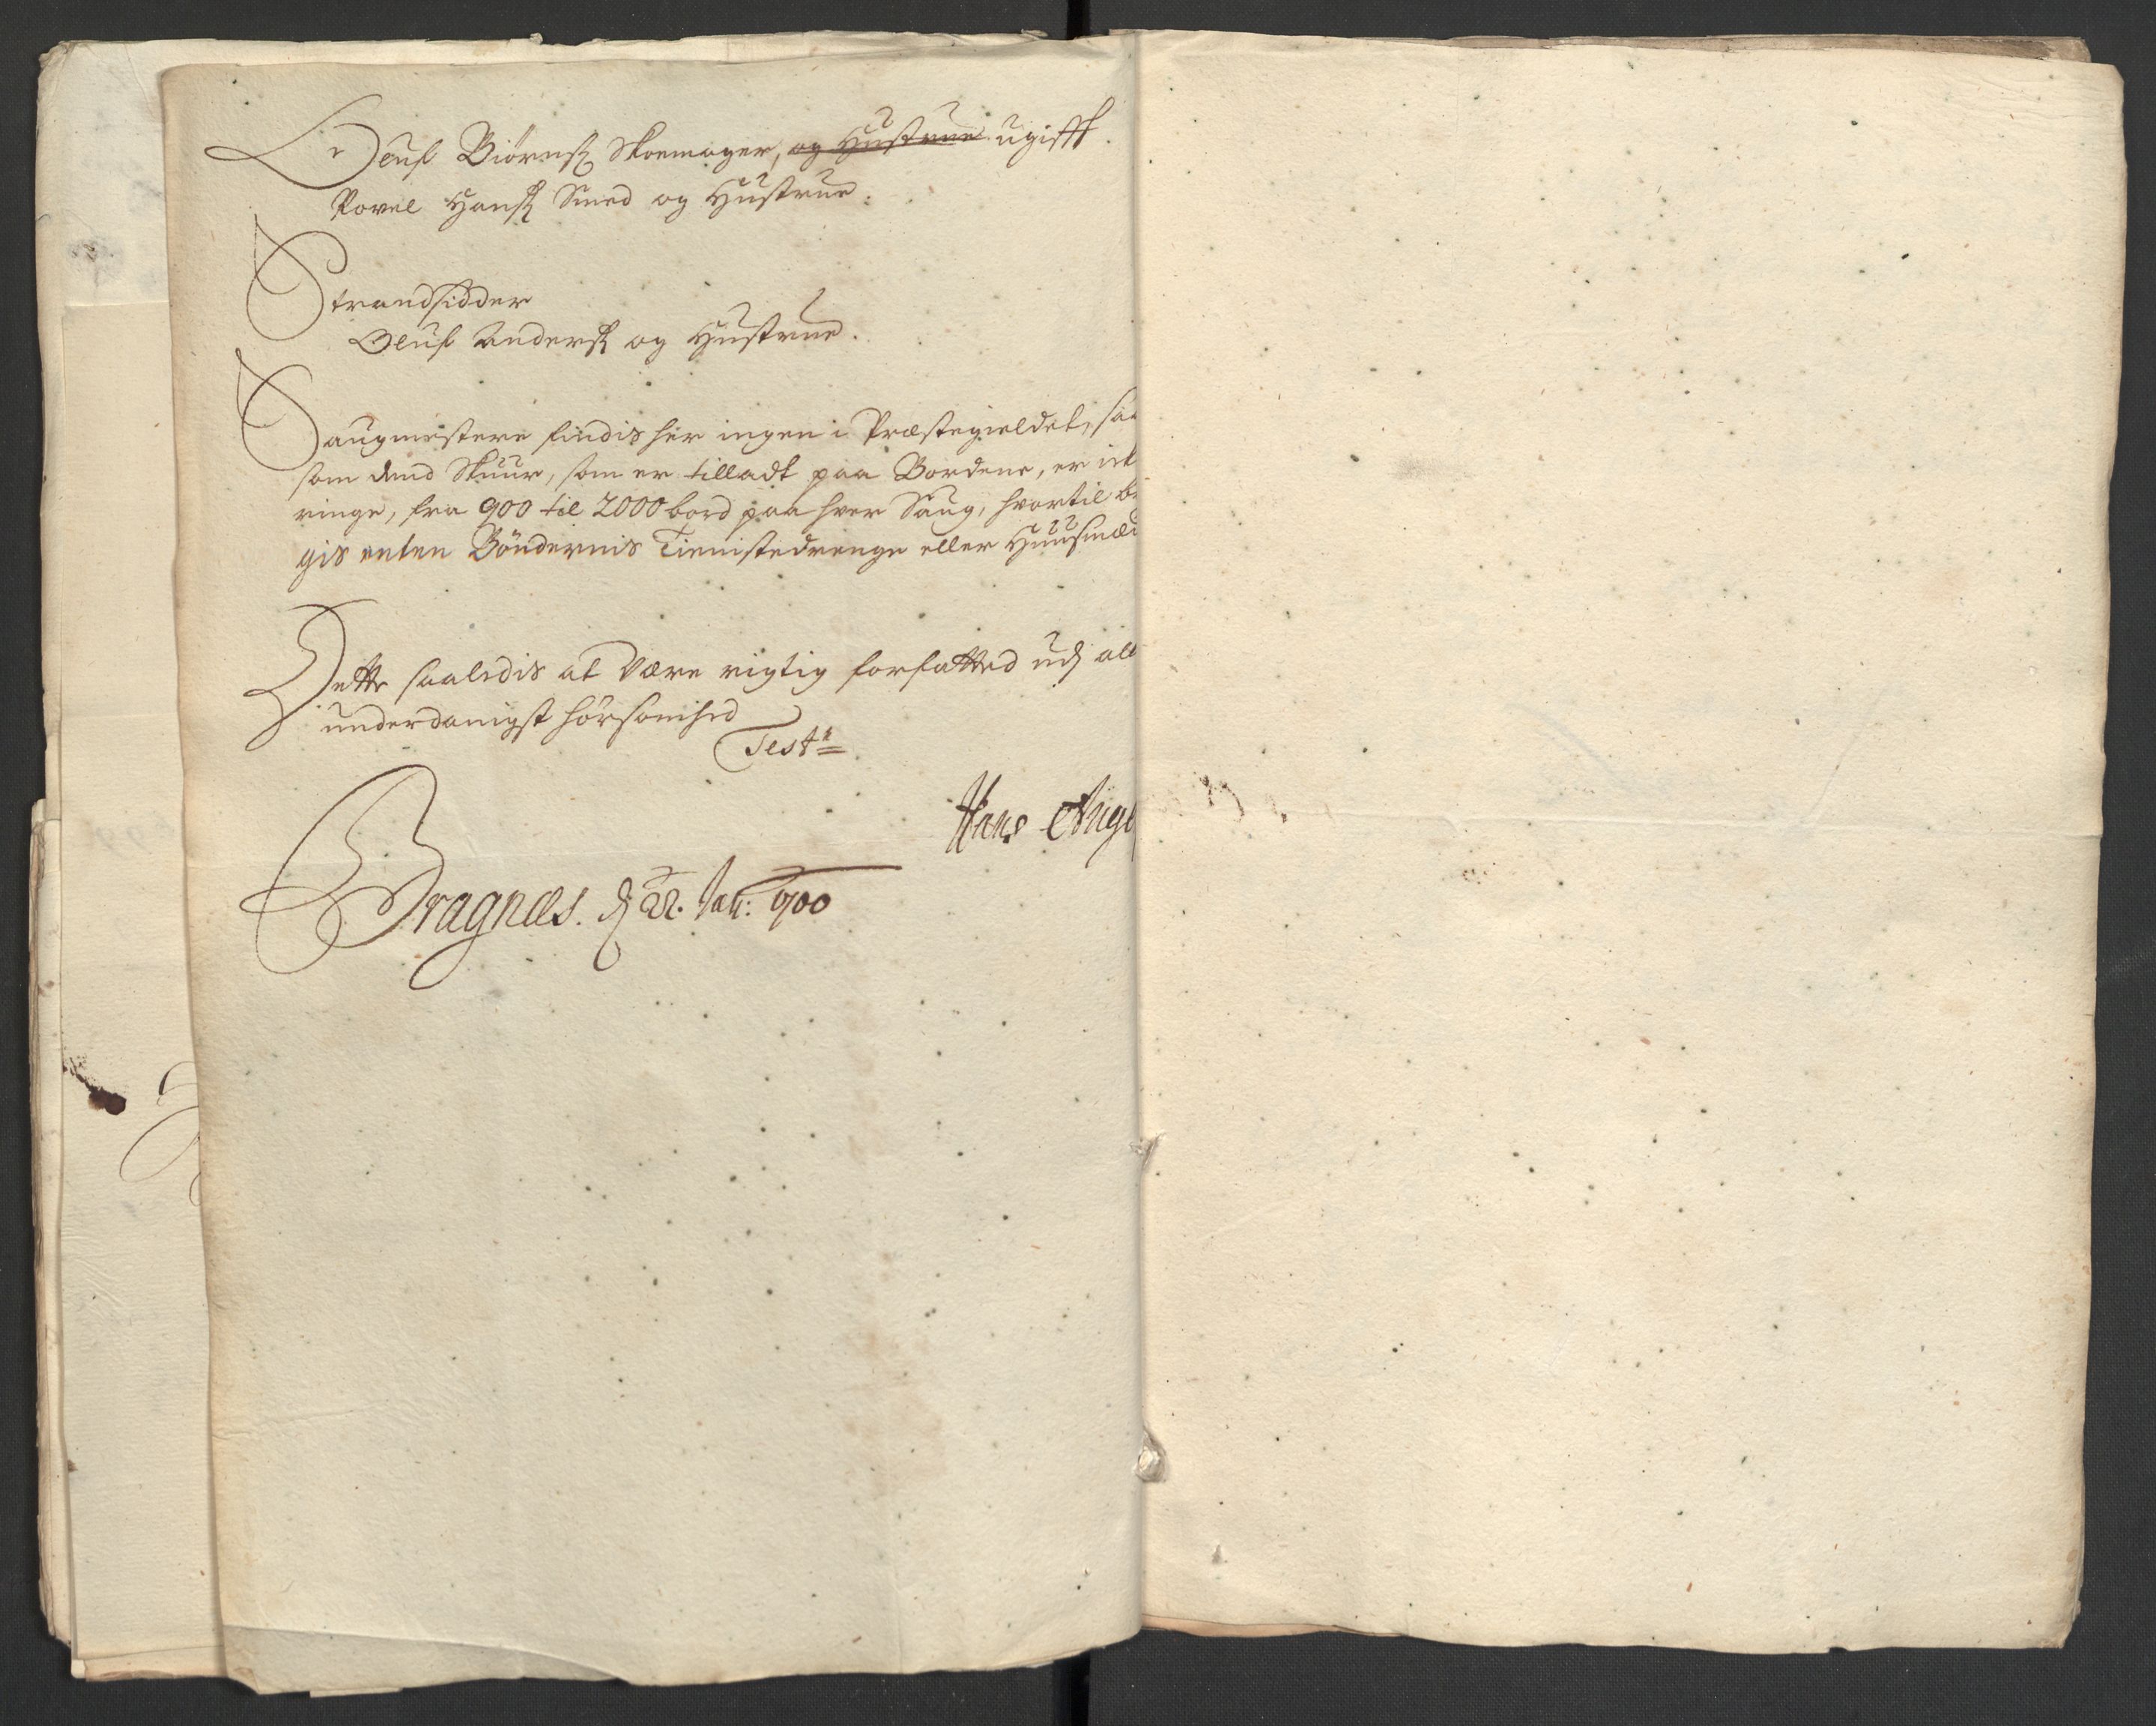 Oluf Biørns: Skoemager, og Hustrue ugifft
Povel Hans: Smed og Hustrue.
Strandsidder
Oluf Anders: og Hustrue.
Saugmestere findis her ingen i Præstegieldet, saa
som dend Skuur, som er tilladt paa Bordene, er
ringe, fra 900 til 2000 bord paa hver Saug, hvortil
gis enten Bøndernis Tienistedrenge eller Huusmæ
Dette saaledis at være rigtig forfatted udj all
underdanigst hørsomhed
Teste
Hans Ange
Bragnæs. d 22. Jan: 700